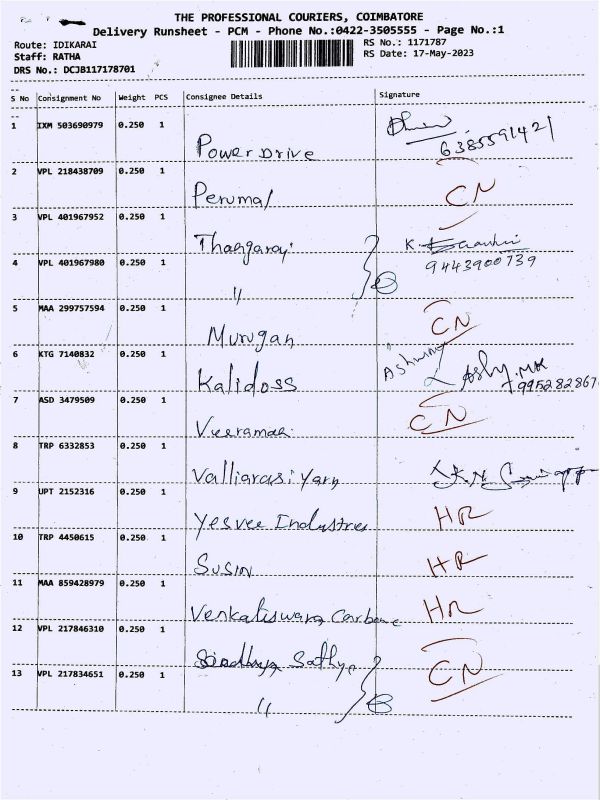 THE PROFESSIONAL COURIERS, COIMBATORE
Delivery Runsheet - PCM - Phone No.:0422-3505555 - Page No.:1
Route: IDIKARAI
RS No.: 1171787
Staff: RATHA
RS Date: 17-May-2023
DRS No.: DCJB117178701
S No Consignment No Weight PCS Consignee Details Signature
1 IXM 503690979 0.250 1 Power Drive 6385591421
2 VPL 218438709 0.250 1 Perumal CN
3 VPL 401967952 0.250 1 Thangaraj K.
9443900739
4 VPL 401967980 0.250 1 "
5 MAA 299757594 0.250 1 Murugan CN
6 KTG 7140832 0.250 1 Kalidoss Ashwing
7 ASD 3479509 0.250 1 Veeramae CN
8 TRP 6332853 0.250 1 Valliarasi Yarn
9 UPT 2152316 0.250 1 Yesvee Industries HR
10 TRP 4450615 0.250 1 Susin HR
11 MAA 859428979 0.250 1 Venkatiswara Carbone HR
12 VPL 217846310 0.250 1 Sathya CN
13 VPL 217834651 0.250 1 "